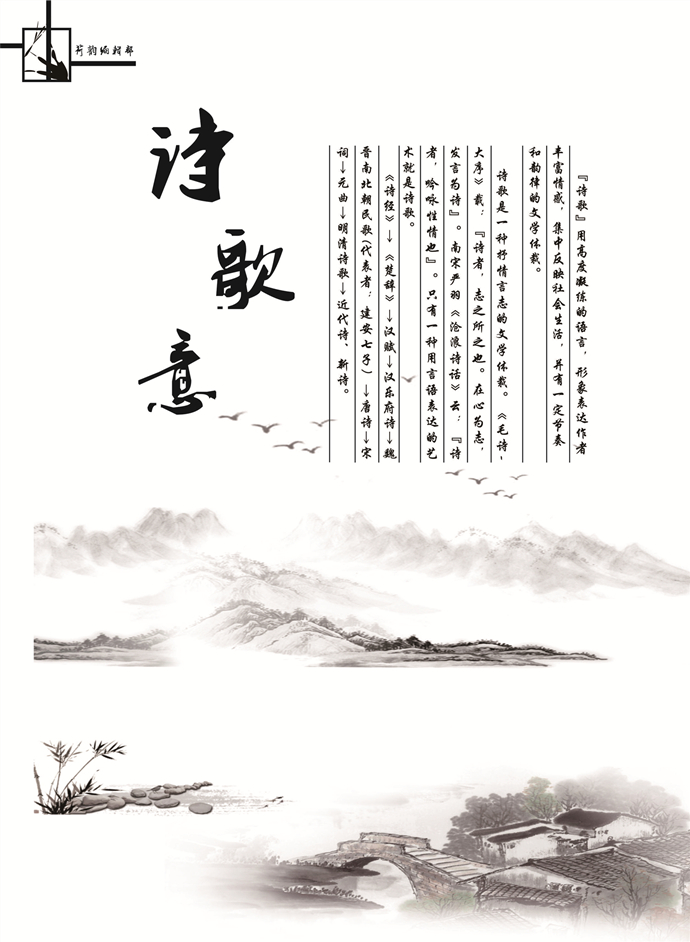 荷韵编辑部
诗歌意
『诗歌』用高度凝练的语言，形象表达作者
丰富情感，集中反映社会生活，并有一定节奏
和韵律的文学体裁。
诗歌是一种抒情言志的文学体裁。《毛诗-
大序》载：『诗者，志之所之也。在心为志，
发言为诗』。南宋严羽《沧浪诗话》云：『诗
者，吟咏性情也』。只有一种用言语表达的艺
术就是诗歌。
《诗经》→《楚辞》→汉赋→汉乐府诗→魏
晋南北朝民歌(代表者：建安七子)→唐诗→宋
词→元曲→明清诗歌→近代诗、新诗。